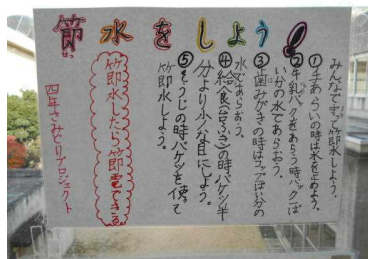 節水をしよう!
みんなで節水しよう。
①手あらいの時は水を止めよう。
②牛乳パックをあらう時パック一ぱ
い分の水であらおう。
③歯みがきの時はコップ一ぱい分の
水であらおう。
④給食(台ふき)の時バケツ半
分より少な目にしよう。
⑤そうじの時バケツを使って
節水しよう。
節水したら節電できる
四年さみどりプロジェクト